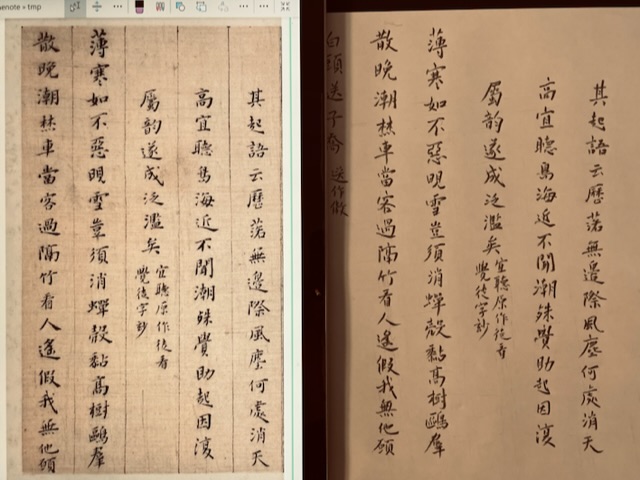 enote » tmp
其起語云歷落無邊際風塵何處消天
高宜聽鳥海近不聞潮殊覺助起因復
屬韵遂成泛濫矣
宜聽原作看
覺字
薄寒如不惡晛雪豈須消蟬殼黏高樹鷗羣
散晚潮焚車當客過隔竹看人遙假我無他願
其起語云歷落無邊際風塵何處消天
高宜聽鳥海近不聞潮殊覺助起因復
屬韵遂成泛濫矣
宜聽原作看
覺字
薄寒如不惡晛雪豈須消蟬殼黏高樹鷗羣
散晚潮焚車當客過隔竹看人遙假我無他願
白頭送子